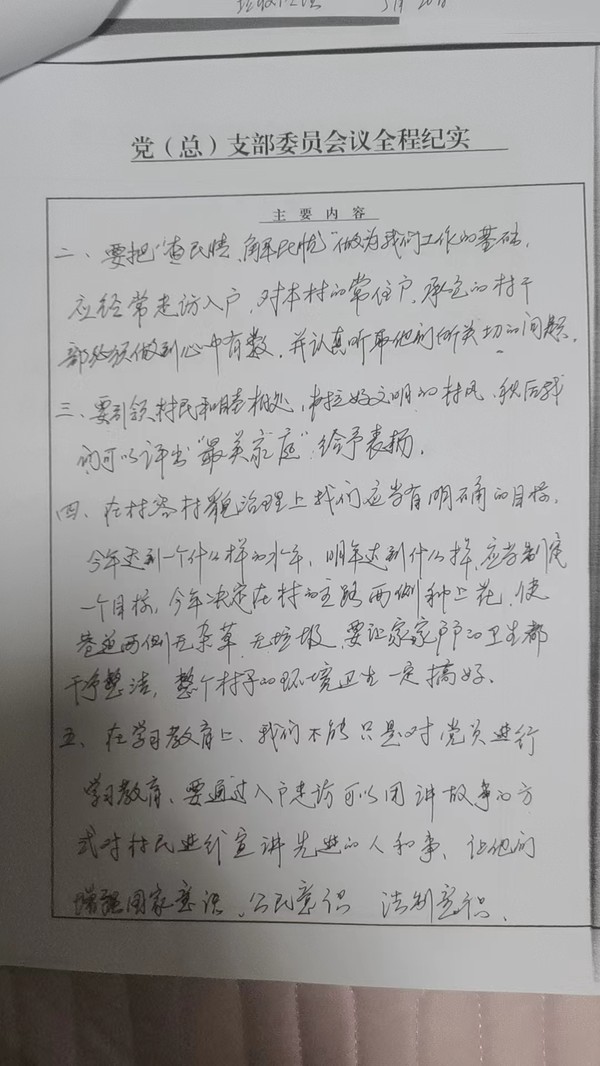 党（总）支部委员会议全程纪实
主要内容
二、要把“查民情、解民忧”做为我们工作的基础，
应经常走访入户，对本村的常住户，的村干
部必须做到心中有数，并认真听取他们所关切的问题。
三、要引领村民和睦相处，文明的村风，秋后我
们可以评出“最美家庭”给予表扬。
四、在村容村貌治理上我们应当有明确的目标。
今年达到一个什么样的水平，明年达到什么样，应当制定
一个目标，今年决定在村的主路两侧种上花，使
巷道两侧无杂草，无垃圾，要让家家户户的卫生都
干净整洁，整个村子的环境卫生一定搞好。
五、在学习教育上，我们不能只是对党员进行
学习教育，要通过入户走访可以用讲故事的方
式对村民进行宣讲先进的人和事，让他们
增强国家意识、公民意识 法制意识，